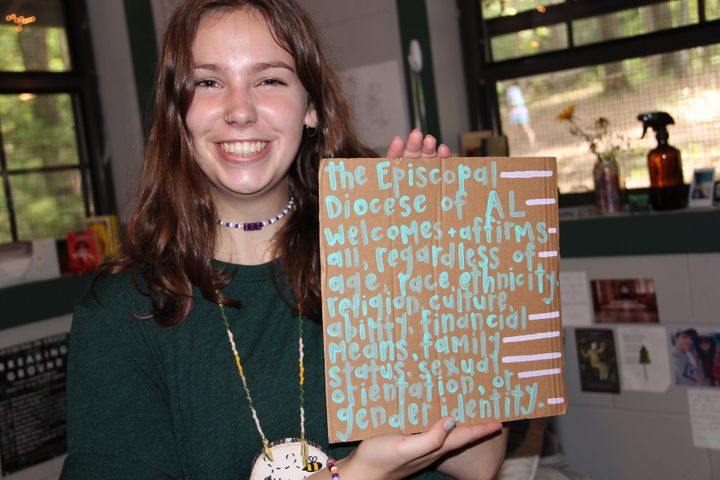 the Episcopal
Diocese of AL
welcomes + affirms
all, regardless of
age, race, ethnicity,
religion, culture,
ability, financial
means, family
status, sexual
orientation, or
gender identity.